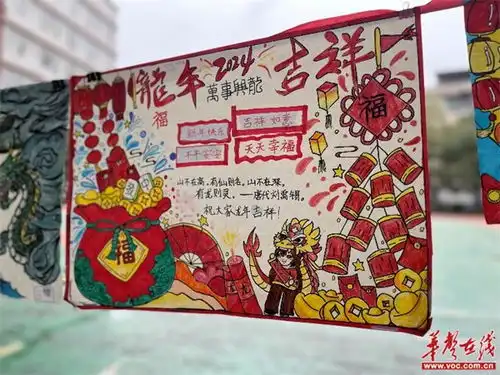 龍年 2024 吉祥
萬事興龍
福
新年快乐 吉祥如意
平平安安 天天幸福
福
山不在高，有仙则名，山不在深，
有龙则灵。——唐代刘禹锡。
祝大家龙年吉祥！
福
華聲在线
www.voc.com.cn